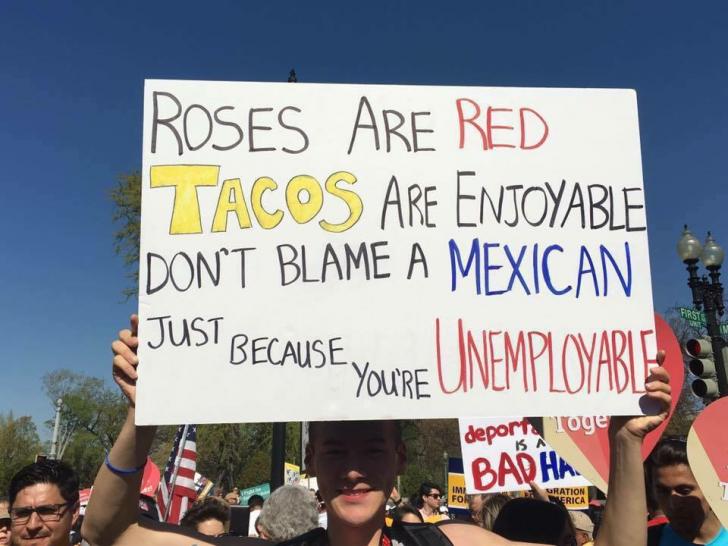 ROSES ARE RED
TACOS ARE ENJOYABLE
DON'T BLAME A MEXICAN
JUST BECAUSE YOU'RE UNEMPLOYABLE
FIRST
deport
IS A
BAD HA
Toge
GRATION
ERICA